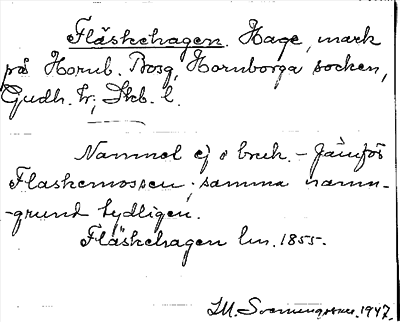 Fläskehagen. Hage, mark
på Hornb. Bosg, Hornborga socken,
Gudh. hr; Skb. l.
Namnet ej i bruk. - Jämför
Flaskemossen; samma namn-
-grund tydligen.
Fläskehagen lm. 1855.
I.M. 1947.